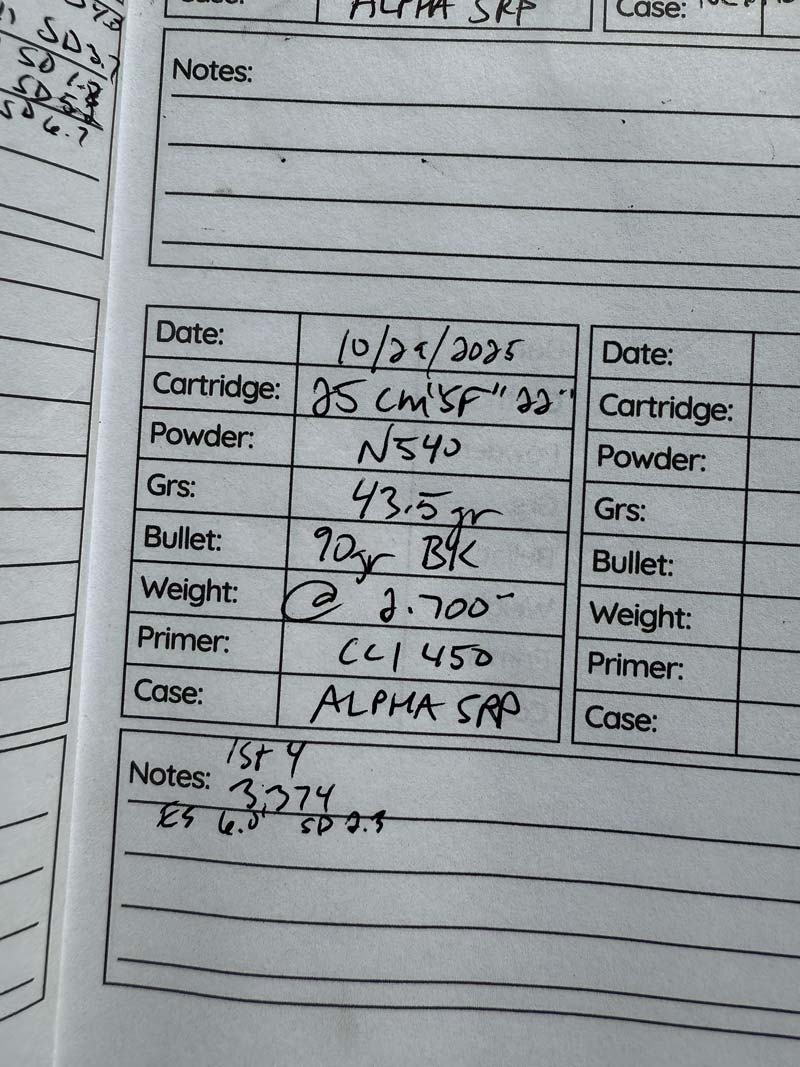 SD 2.7
SD 1.8
SD 6.7
ALPHA SRP
Case:
Notes:
Date: 10/29/2025
Cartridge: 25 cm
Powder: N540
Grs: 43.5 gr
Bullet: 90gr BK
Weight: @ 2.700"
Primer: CCI 450
Case: ALPHA SRP
Date:
Cartridge:
Powder:
Grs:
Bullet:
Weight:
Primer:
Case:
1st 4
Notes: 3,374
ES 6.0 SD 2.3